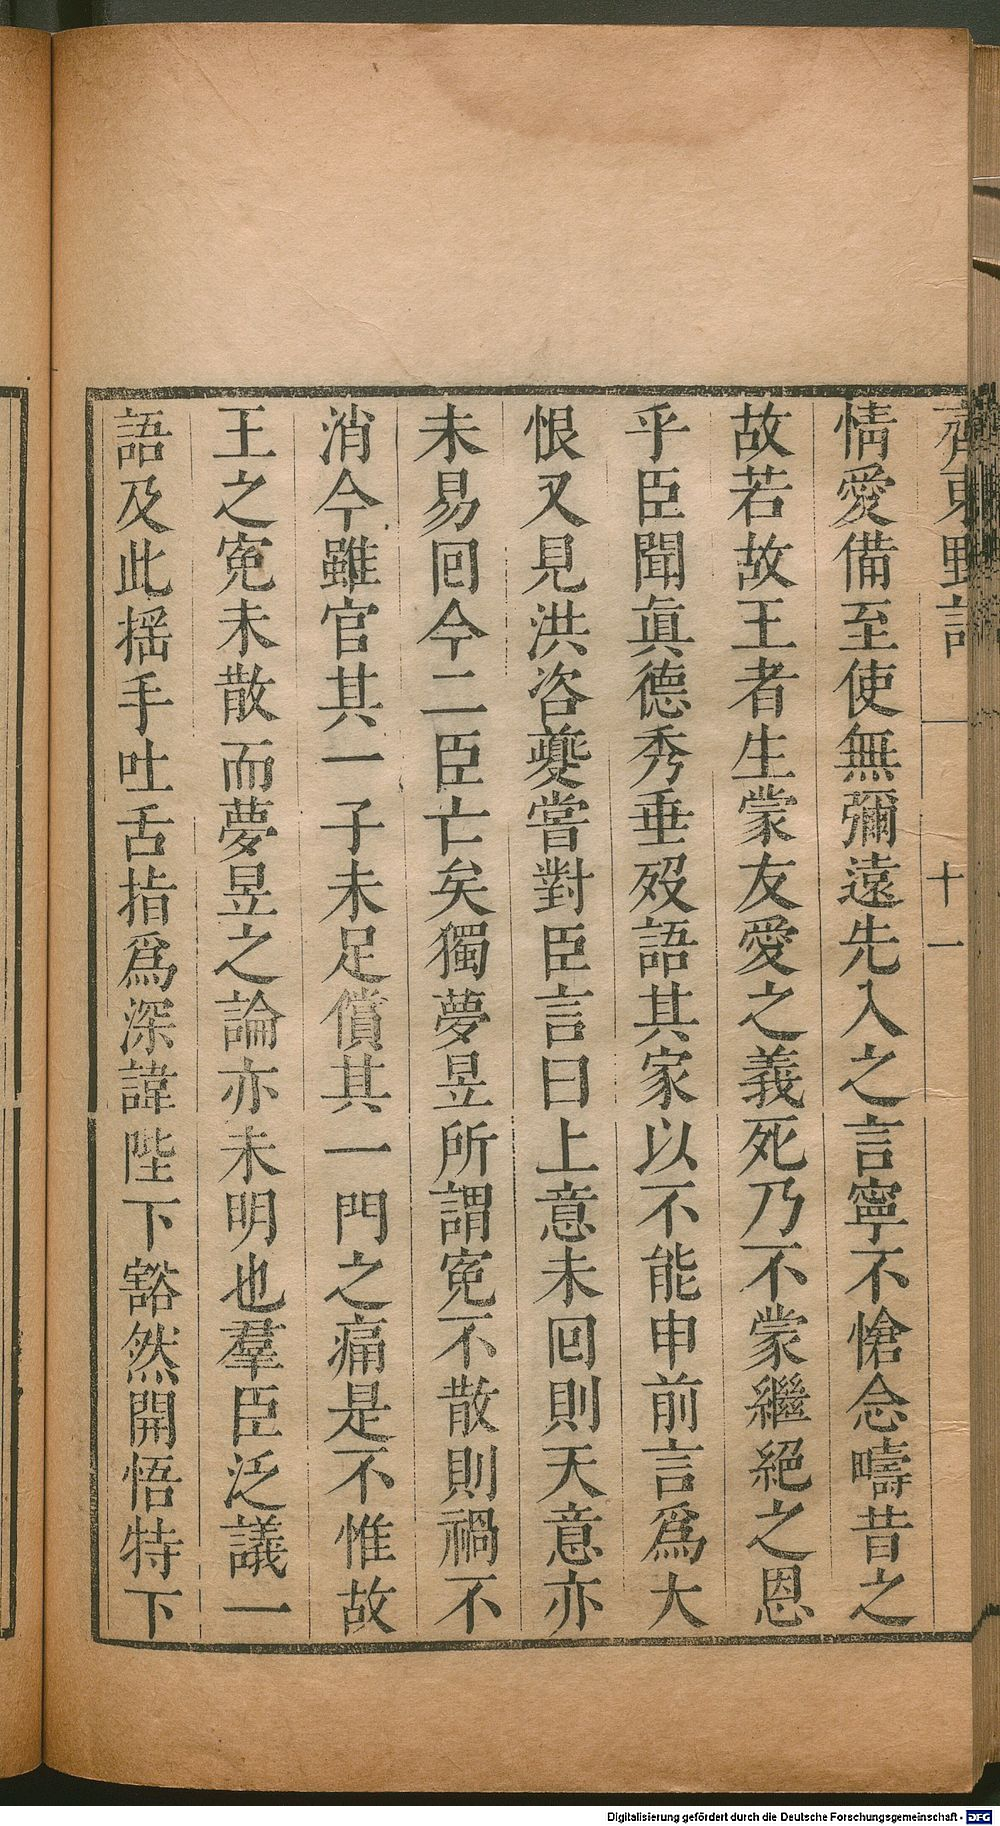 齊東野語
十一
情愛備至使無彌遠先入之言寧不愴念疇昔之
故若故王者生蒙友愛之義死乃不蒙繼絕之恩
乎臣聞眞德秀垂歿語其家以不能申前言爲大
恨又見洪咨夔嘗對臣言曰上意未囘則天意亦
未易囘今二臣亡矣獨夢昱所謂寃不散則禍不
消今雖官其一子未足償其一門之痛是不惟故
王之寃未散而夢昱之論亦未明也羣臣泛議一
語及此搖手吐舌指爲深諱陛下豁然開悟特下
Digitalisierung gefördert durch die Deutsche Forschungsgemeinschaft - DFG